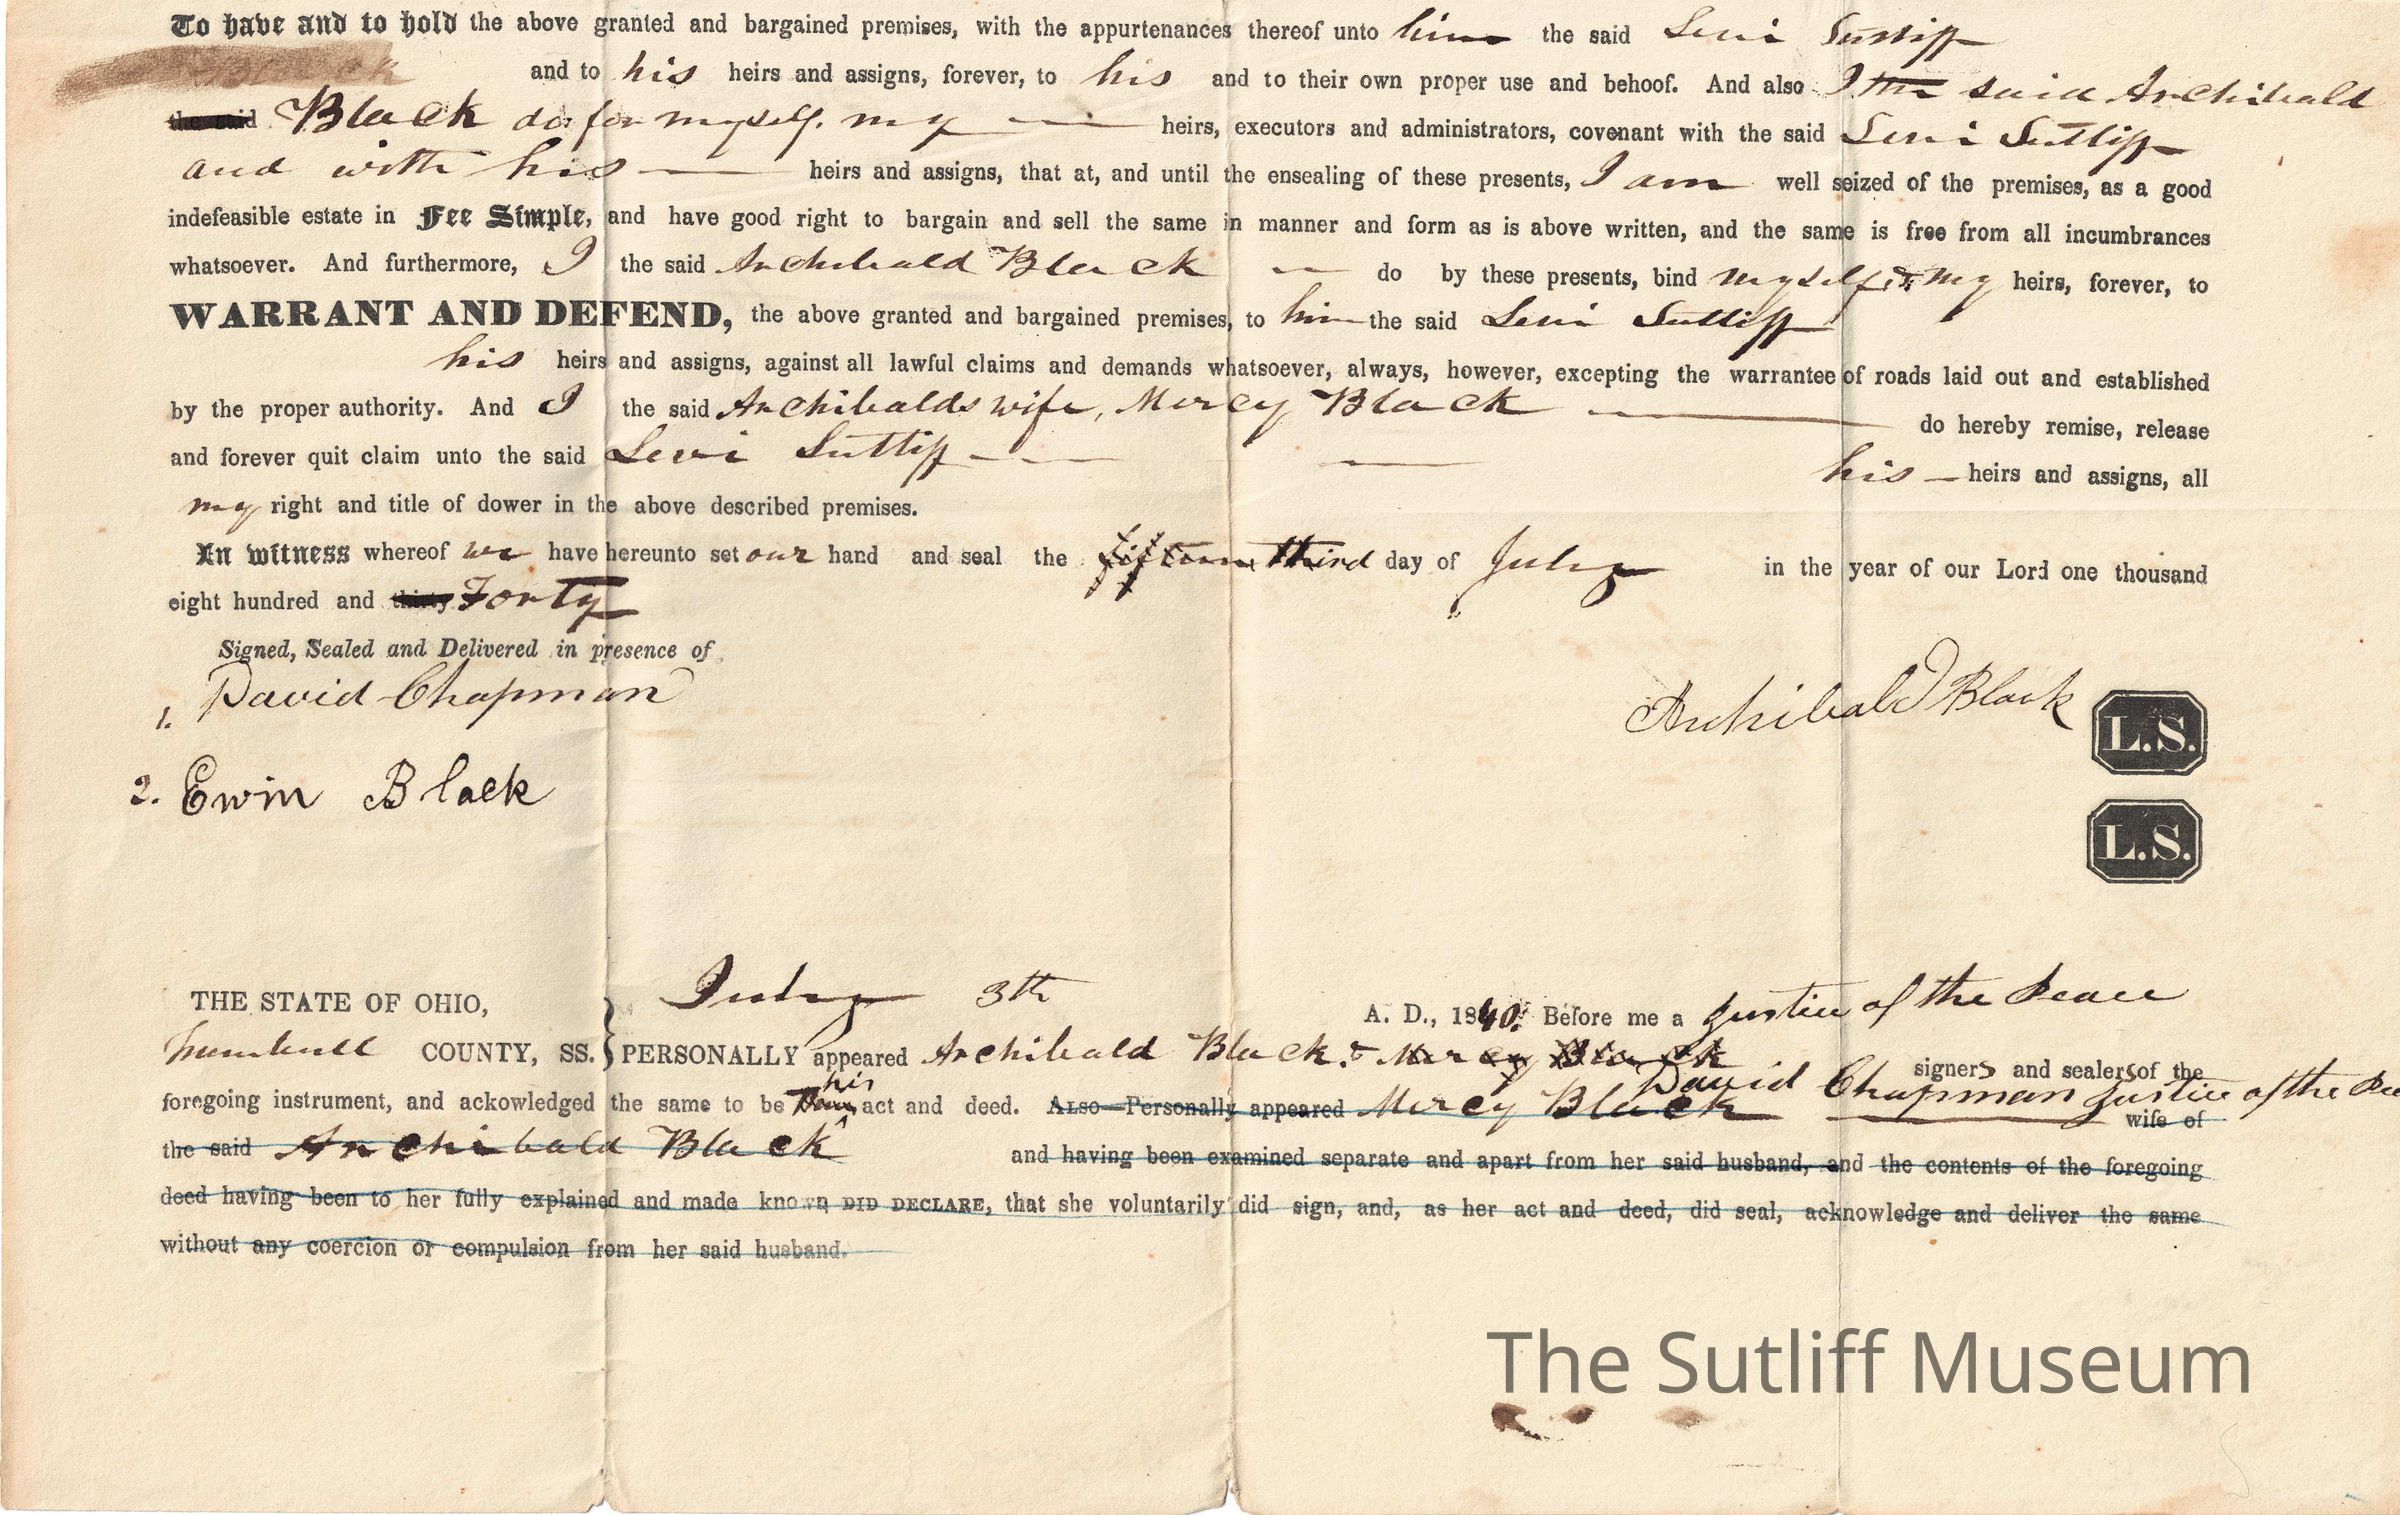 To have and to hold the above granted and bargained premises, with the appurtenances thereof unto him the said Levi Sutliff
Black and to his heirs and assigns, forever, to his and to their own proper use and behoof. And also I the said Archibald
the said Black do for myself, my heirs, executors and administrators, covenant with the said Levi Sutliff
and with his heirs and assigns, that at, and until the ensealing of these presents, I am well seized of the premises, as a good
indefeasible estate in Fee Simple, and have good right to bargain and sell the same in manner and form as is above written, and the same is free from all incumbrances
whatsoever. And furthermore, I the said Archibald Black do by these presents, bind myself & my heirs, forever, to
WARRANT AND DEFEND, the above granted and bargained premises, to him the said Levi Sutliff
his heirs and assigns, against all lawful claims and demands whatsoever, always, however, excepting the warrantee of roads laid out and established
by the proper authority. And I the said Archibalds wife, Mercy Black do hereby remise, release
and forever quit claim unto the said Levi Sutliff his heirs and assigns, all
my right and title of dower in the above described premises.
In witness whereof we have hereunto set our hand and seal the fifteen third day of July in the year of our Lord one thousand
eight hundred and thirty Forty
Signed, Sealed and Delivered in presence of
1. David Chapman
Archibald Black L.S.
2. Ewin Black
L.S.
THE STATE OF OHIO,
July 3th A. D., 1840. Before me a Justice of the Peace
Trumbull COUNTY, SS. } PERSONALLY appeared Archibald Black & Mercy Black signers and sealers of the
his
David Chapman Justice of the Pea
foregoing instrument, and ackowledged the same to be act and deed. Also—Personally appeared Mercy Black wife of
the said Archibald Black and having been examined separate and apart from her said husband, and the contents of the foregoing
deed having been to her fully explained and made known DID DECLARE, that she voluntarily did sign, and, as her act and deed, did seal, acknowledge and deliver the same
without any coercion or compulsion from her said husband.
The Sutliff Museum